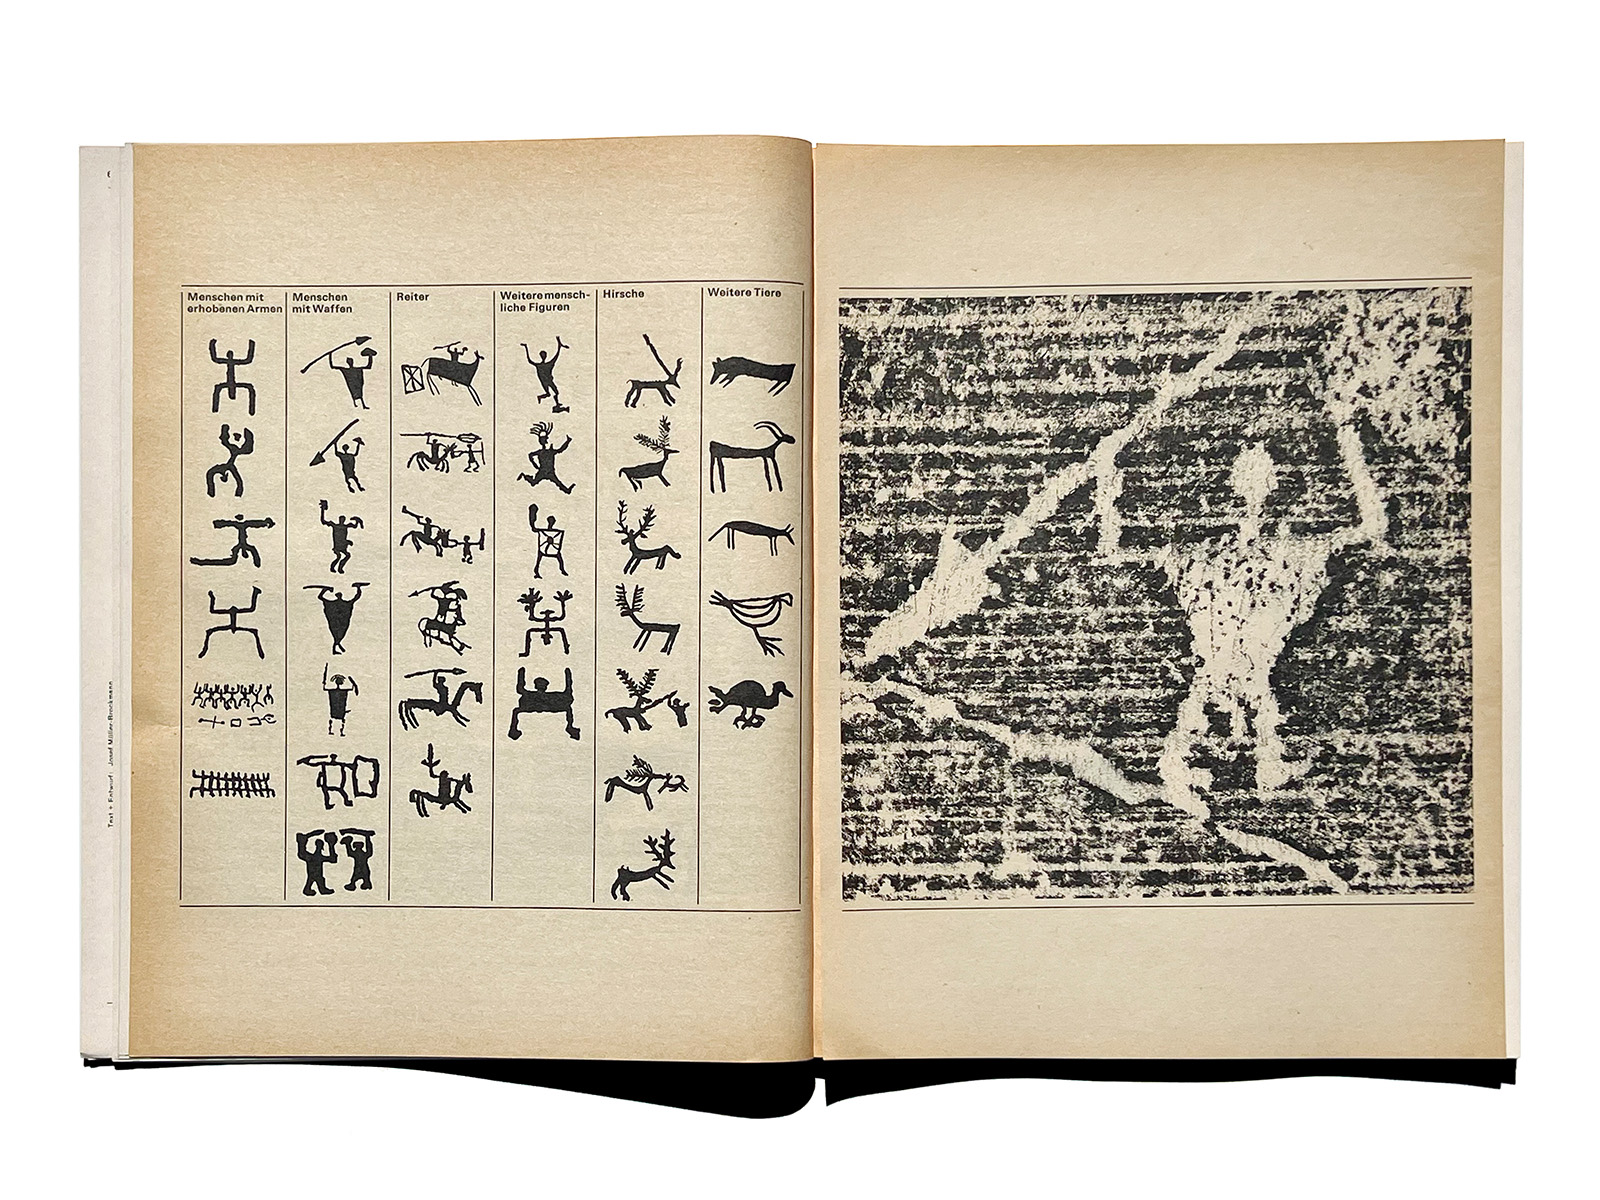 Menschen mit
erhobenen Armen
Menschen
mit Waffen
Reiter
Weitere mensch-
liche Figuren
Hirsche
Weitere Tiere
Text + Entwurf: Josef Müller-Brockmann